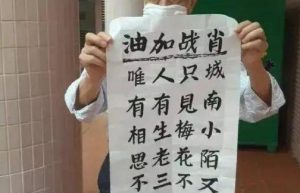 肖战加油
城南小陌又
只見梅花不
人有生老三
唯有相思不